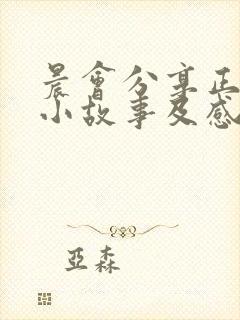 晨會分享正
小故事及感
亞森